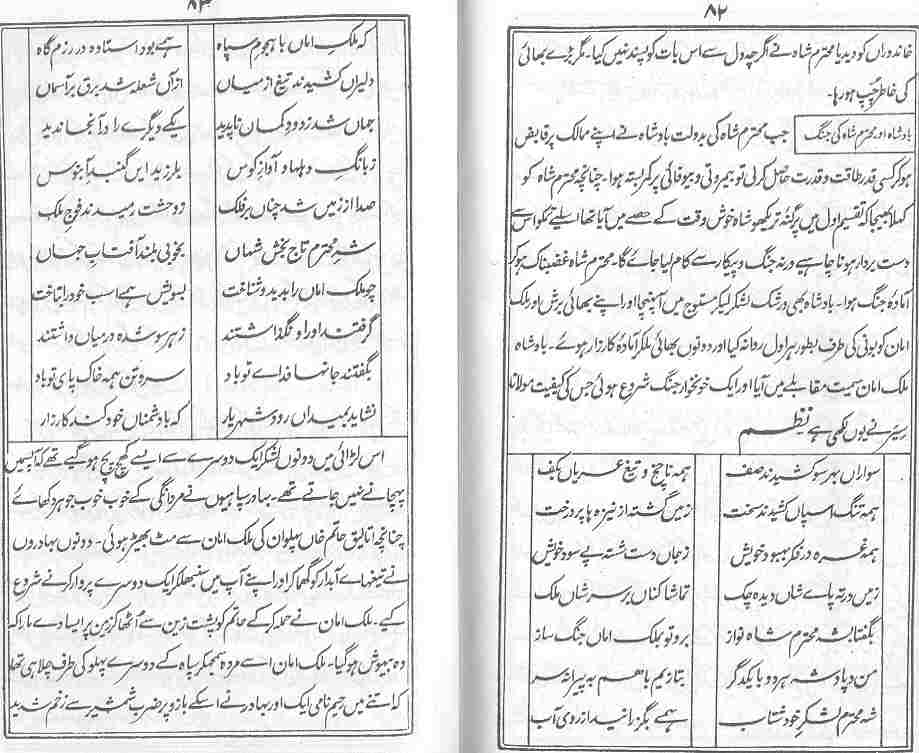 ۸۲
خاندوراں کو دیدیا محترم شاہ نے اگرچہ دل سے اس بات کو پسند نہیں کیا۔ مگر بڑے بھائی
کی خاطر چپ ہو رہا۔
بادشاہ اور محترم شاہ کی جنگ
جب محترم شاہ کی بدولت بادشاہ نے اپنے ممالک پر قابض
ہو کر کسی قدر طاقت و قدرت حاصل کر لی تو بیمروتی و بیوفائی پر کمر بستہ ہوا۔ چنانچہ محترم شاہ کو
کہلا بھیجا کہ تقسیم اول میں پرگنہ تریکھو شاہ خوش وقت کے حصے میں آیا تھا اسلیے تمکو اس سے
دست بردار ہونا چاہیے ورنہ جنگ و پیکار سے کام لیا جائے گا۔ محترم شاہ غضبناک ہو کر
آمادۂ جنگ ہوا۔ بادشاہ بھی در شک لشکر لیکر مستوج میں آ پہنچا اور اپنے بھائی برش اور ملک
امان کو بونی کی طرف بطور ہراول روانہ کیا اور دونوں بھائی ملکر آمادۂ کارزار ہوئے۔ بادشاہ
ملک امان سمیت مقابلے میں آیا اور ایک خونخوار جنگ شروع ہوئی جس کی کیفیت مولانا
سیئر نے یوں لکھی ہے نظم
سواراں بہر سو کشیدند صف ہمہ ناچخ و تیغ عریاں بکف
ہمہ تنگ اسپاں کشیدند سخت زمیں گشتہ از نیزہ ہا پر درخت
ہمہ غرہ در فکر بہبود خویش ز جاں دست شستہ پے سود خویش
زمیں در تہ پاے شاں دیدہ چک تماشا کناں بر سر شاں ملک
بگفتا بشہ محترم شاہ نواز برو تو بملک اماں جنگ ساز
من و پادشہ ہر دو با یکدگر بتازیم باہم بہ پیرانہ سر
شہ محترم لشکر خود شتاب ہمے بگزرانید از روی آب
۸۳
کہ ملک اماں با ہجوم سپاہ ہمے بود استادہ در رزم گاہ
دلیراں کشیدند تیغ از میاں ازآں شعلہ شد برق بر آسماں
جہاں شد ز دود کماں ناپدید یکے دیگرے را در آنجا ندید
ز بانگ دہلہا و آواز کوس بلرزید ایں گنبد آبنوس
صدا از زمیں شد چناں بر فلک ز وحشت رمیدند فوج ملک
شہ محترم تاج بخش شہاں بخوبی بلند آفتاب جہاں
چو ملک اماں را بدید و شناخت بسویش ہمے اسپ خود را بتاخت
گرفتند او را و نگذاشتند ز ہر سو شدہ درمیاں داشتند
بگفتند جانہا فداے تو باد سر و تن ہمہ خاک پای تو باد
نشاید بمیداں رود شہریار کہ با دشمناں خود کند کارزار
اس لڑائی میں دونوں لشکر ایک دوسرے سے ایسے کھچ پچ ہو گیے تھے کہ آپسمیں
پہچانے نہیں جاتے تھے۔ بہادر سپاہیوں نے مردانگی کے خوب خوب جوہر دکھائے
چنانچہ اتالیق حاتم خاں پہلوان کی ملک امان سے مٹ بھیڑ ہوئی۔ دونوں بہادروں
نے تیغہاے آبدار کو گھما کر اور اپنے آپ میں سنبھلکر ایک دوسرے پر وار کرنے شروع
کیے۔ ملک امان نے حملہ کر کے حاتم کو پشت زین سے اٹھا کر زمین پر ایسا دے مارا کہ
وہ بیہوش ہو گیا۔ ملک امان اسے مردہ سمجھکر سپاہ کے دوسرے پہلو کی طرف چلا ہی تھا
کہ اتنے میں رحیم نامی ایک اور بہادر نے اسکے بازو پر ضرب شمشیر سے زخم شدید